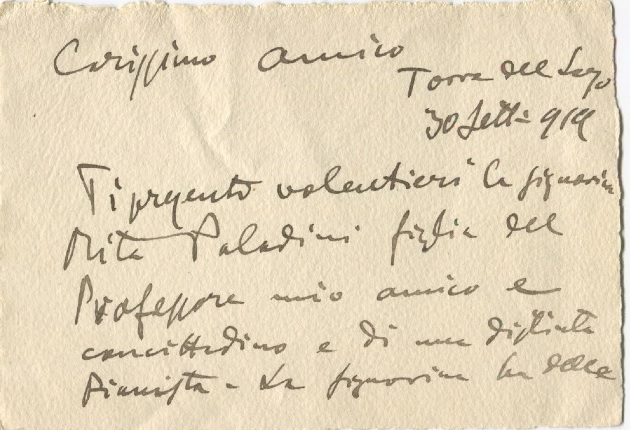 Carissimo amico
Torre del Lago
30 Sett. 919
Ti presento volentieri la signorina
Rita Paladini figlia del
Professore mio amico e
concittadino e di una distinta
pianista - La signorina ha delle